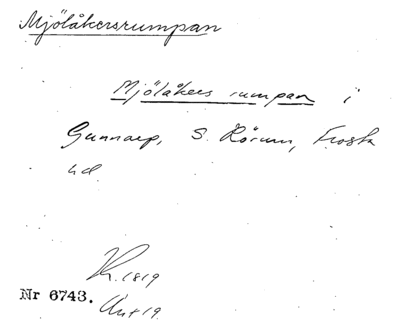 Mjölåkersrumpan
Mjölåkers rumpan i
Gunnarp, S. Rörum, Frosta
hd
K. 1819
Nr 6743.